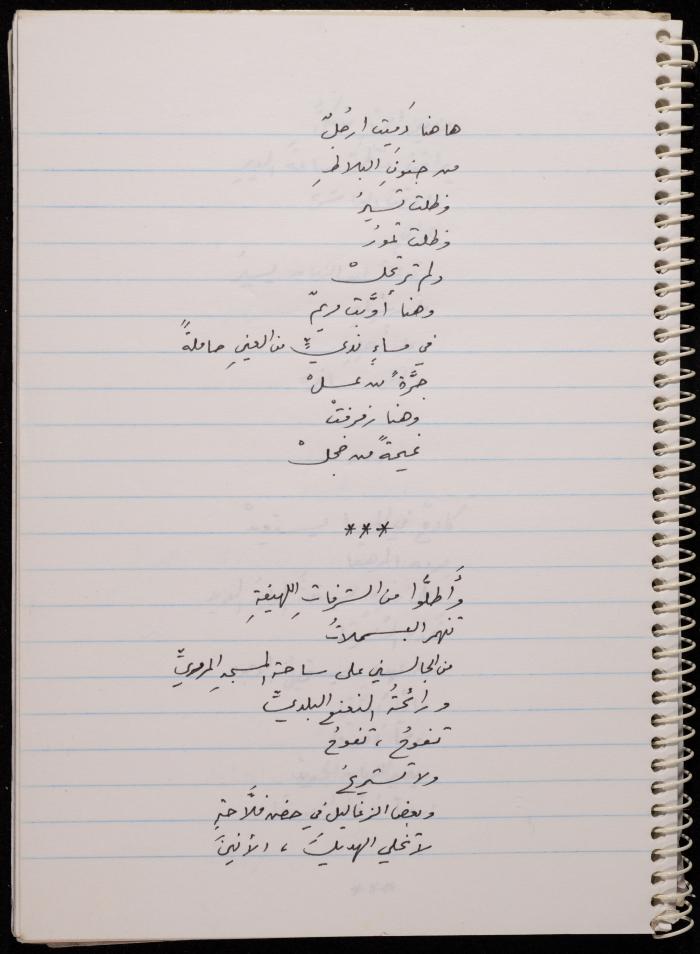 ها هنا دَميت ارجُلٌ
من جنونِ البلاطِ
وظلت تسيرُ
وظلت تمورُ
ولم ترتحلْ
وهنا أوَّبت مريمٌ
في مساءٍ نديٍّ من العينِ حاملةً
جرَّةً من عسلْ
وهنا زفزفتْ
غيمةٌ من خجلْ
***
وأَطلُّوا من الشرفاتِ اللهيفةِ
تنهمر البسملاتُ
من الجالسين على ساحة المسجدِ المرمريِّ
ورائحتُ النعنع البلديِّ
تفوحُ ، تفوحُ
ولا تستريحُ
وبعض الزغاليل في حضن فلَّاحةٍ
لا تخلي الهديلَ ، الأنينَ